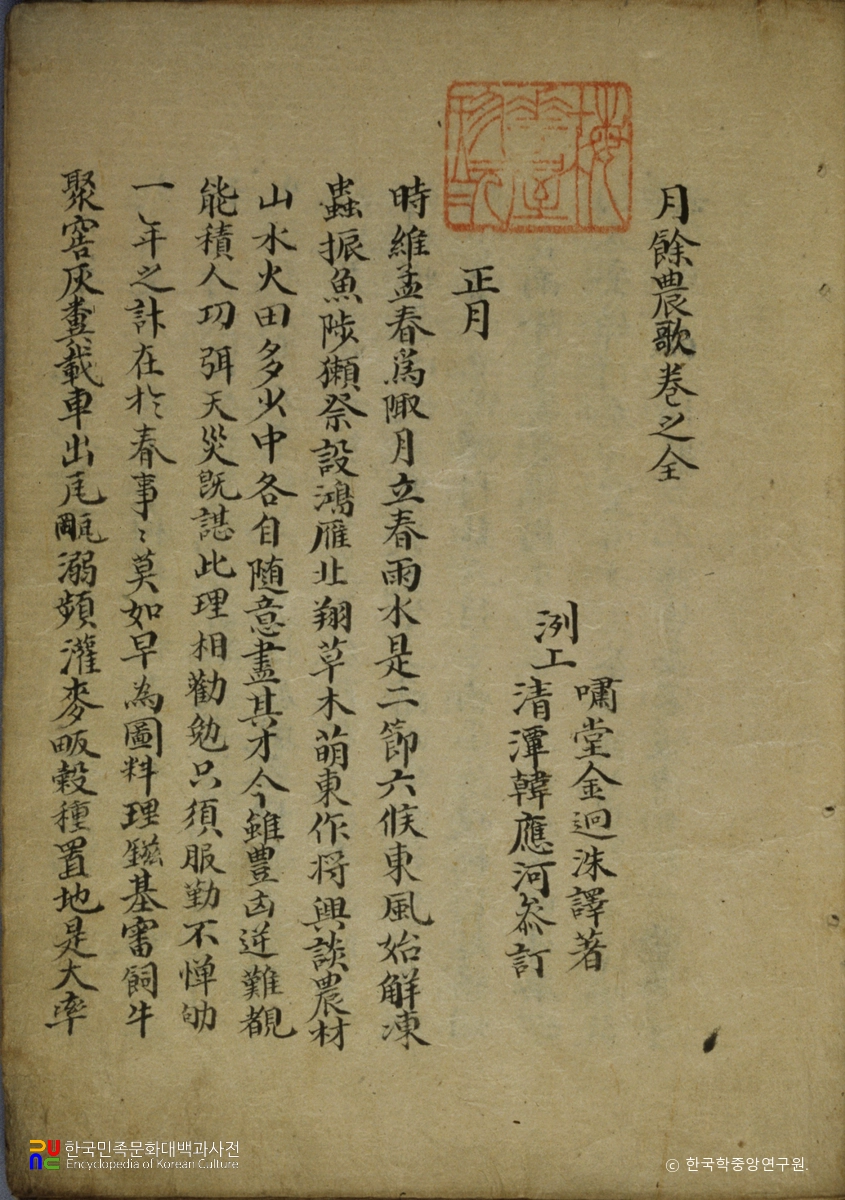 月餘農歌卷之全
嘯堂金逈洙譯著
洌上
清潭韓應河叅訂
正月
時維孟春為陬月立春雨水是二節六候東風始解凍
蟲振魚陟獺祭設鴻雁北翔草木萌東作将興談農材
山水火田多少中各自随意盡其才今雖豊凶逆難覩
能積人功弭天災既諶此理相勸勉只須服勤不憚劬
一年之計在於春事〻莫如早為圖料理鎡基審飼牛
聚窖灰糞載車出尾甌溺頻灌麥畈穀種置地是大率
한국민족문화대백과사전
Encyclopedia of Korean Culture
© 한국학중앙연구원.